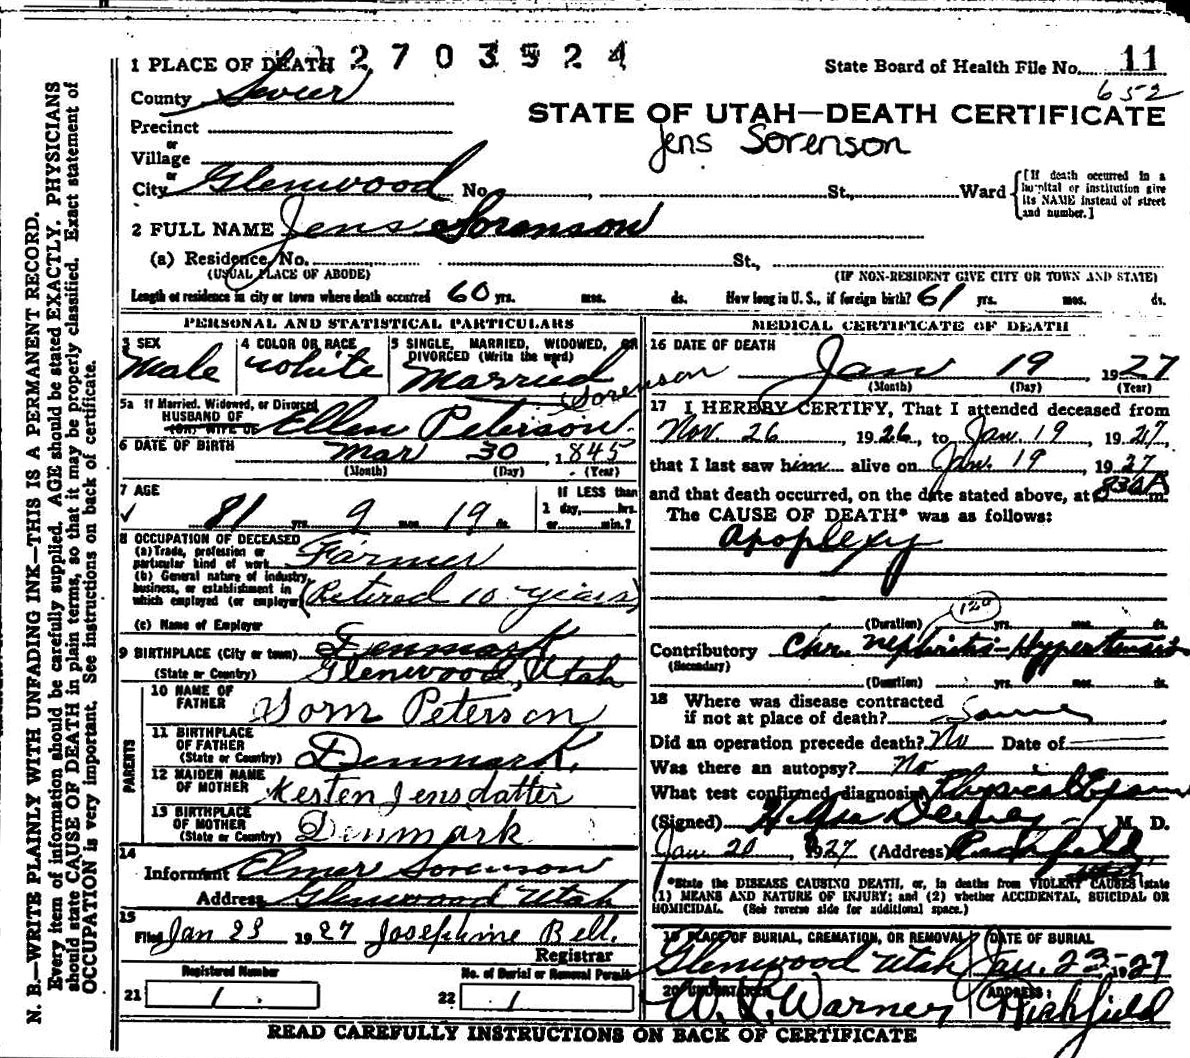 2703524
1 PLACE OF DEATH
State Board of Health File No. 11
652
County Sevier
STATE OF UTAH—DEATH CERTIFICATE
Precinct
Jens Sorenson
or
Village
or
City Glenwood No. , St., Ward
[If death occurred in a hospital or institution give its NAME instead of street and number.]
2 FULL NAME Jens Sorenson
(a) Residence, No. St.,
(USUAL PLACE OF ABODE) (IF NON-RESIDENT GIVE CITY OR TOWN AND STATE)
Length of residence in city or town where death occurred 60 yrs. mos. ds. How long in U. S., if foreign birth? 61 yrs. mos. ds.
PERSONAL AND STATISTICAL PARTICULARS
3 SEX 4 COLOR OR RACE 5 SINGLE, MARRIED, WIDOWED, OR
DIVORCED (Write the word)
Male white Married
Sorenson
5a If Married, Widowed, or Divorced
HUSBAND OF
(OR) WIFE OF Ellen Peterson
6 DATE OF BIRTH Mar 30, 1845
(Month) (Day) (Year)
7 AGE If LESS than
1 day, hrs.
81 yrs. 9 mos. 19 ds. or min.?
8 OCCUPATION OF DECEASED
(a) Trade, profession or
particular kind of work Farmer
(b) General nature of industry,
business, or establishment in
which employed (or employer) (Retired 10 years)
(c) Name of Employer
9 BIRTHPLACE (City or town) Denmark
(State or Country) Glenwood, Utah
PARENTS
10 NAME OF
FATHER Sorn Peterson
11 BIRTHPLACE
OF FATHER
(State or Country) Denmark.
12 MAIDEN NAME
OF MOTHER Kesten Jensdatter
13 BIRTHPLACE
OF MOTHER
(State or Country) Denmark
14
Informant Elmer Sorenson
Address Glenwood Utah
15
Filed Jan 23 1927 Josephine Bell.
Registrar
Registered Number No. of Burial or Removal Permit
21 1. 22 1
MEDICAL CERTIFICATE OF DEATH
16 DATE OF DEATH
Jan 19, 1927
(Month) (Day) (Year)
17 I HEREBY CERTIFY, That I attended deceased from
Nov. 26, 1926, to Jan. 19, 1927,
that I last saw him alive on Jan. 19, 1927
and that death occurred, on the date stated above, at 830 A m.
The CAUSE OF DEATH* was as follows:
Apoplexy
(Duration) yrs. mos. ds.
Contributory Chr. nephritis-Hypertension
(Secondary)
(Duration) yrs. mos. ds.
18 Where was disease contracted
if not at place of death? Same
Did an operation precede death? No Date of
Was there an autopsy? No
What test confirmed diagnosis? Physical Exam
(Signed) M. D.
Jan 20, 1927 (Address) Richfield,
Utah
*State the DISEASE CAUSING DEATH, or, in deaths from VIOLENT CAUSES state
(1) MEANS AND NATURE OF INJURY; and (2) whether ACCIDENTAL, SUICIDAL OR
HOMICIDAL. (See reverse side for additional space.)
19 PLACE OF BURIAL, CREMATION, OR REMOVAL? DATE OF BURIAL
Glenwood Utah Jan. 23-1927
20 UNDERTAKER ADDRESS:
Warner Richfield
READ CAREFULLY INSTRUCTIONS ON BACK OF CERTIFICATE
N. B.—WRITE PLAINLY WITH UNFADING INK—THIS IS A PERMANENT RECORD.
Every item of information should be carefully supplied. AGE should be stated EXACTLY. PHYSICIANS
should state CAUSE OF DEATH in plain terms, so that it may be properly classified. Exact statement of
OCCUPATION is very important. See instructions on back of certificate.